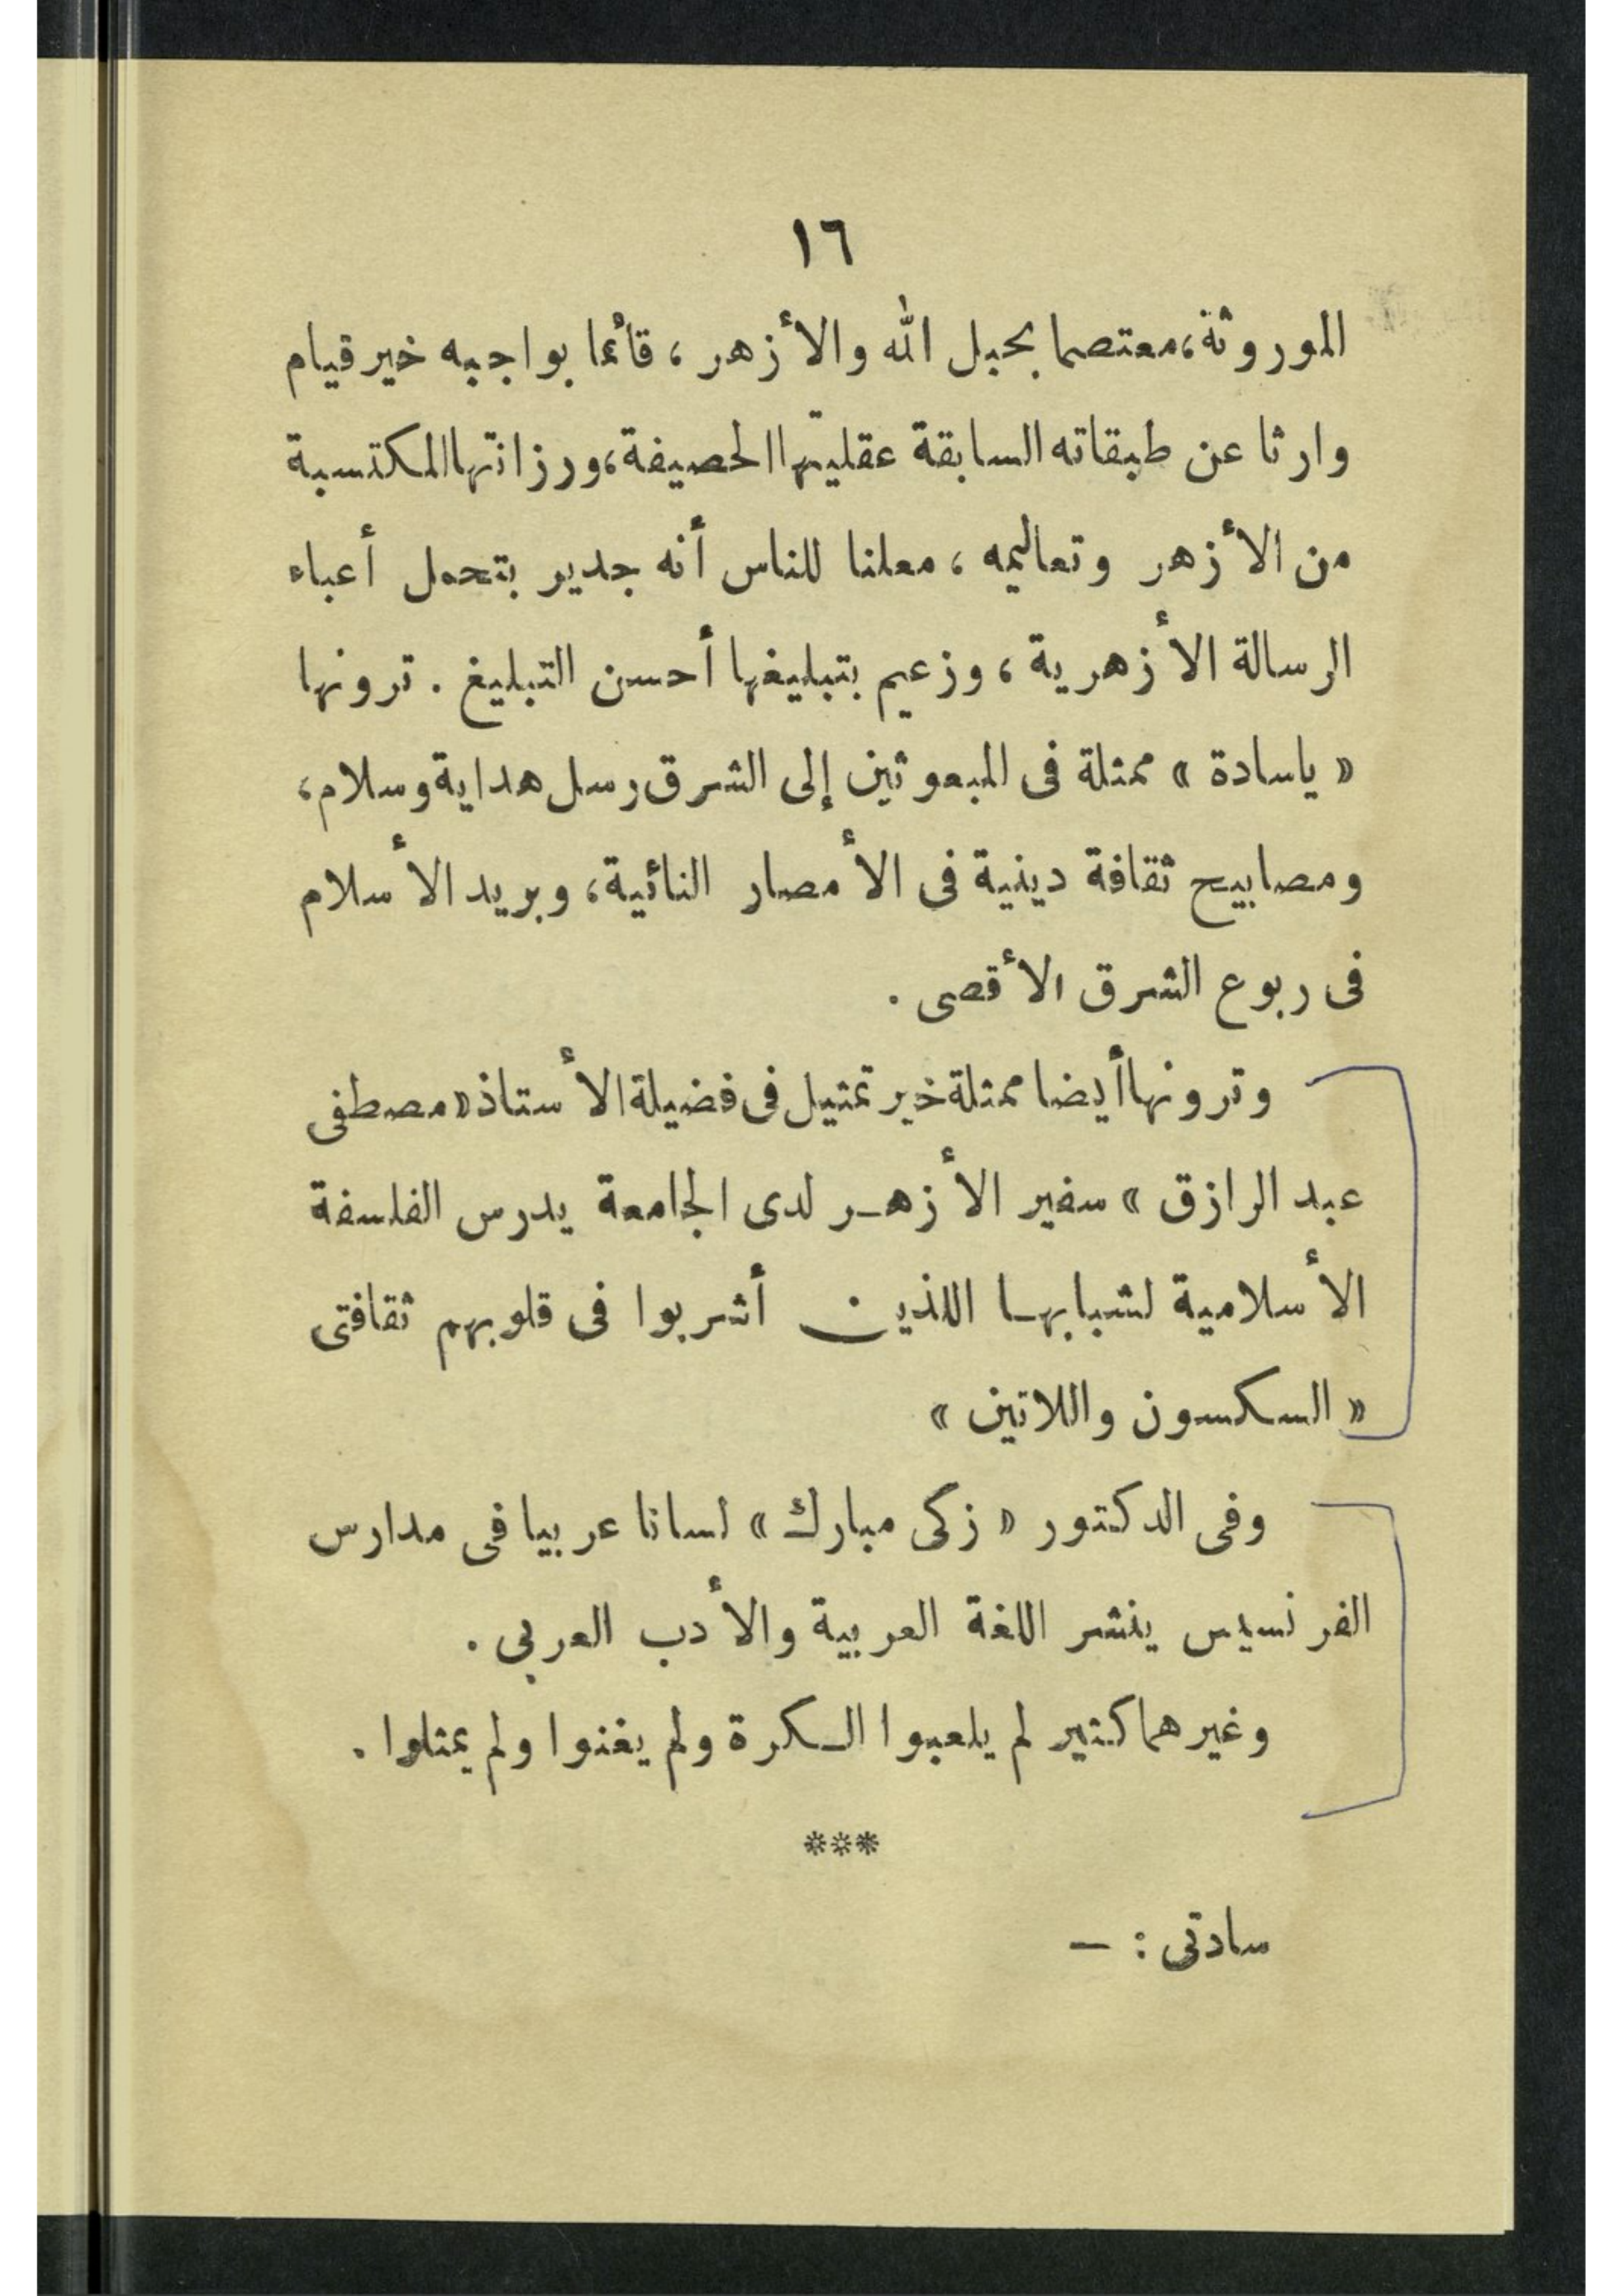 ١٦
الموروثة، معتصما بحبل الله والأزهر، قائما بواجبه خير قيام
وارثا عن طبقاته السابقة عقليتها الحصيفة، ورزانتها المكتسبة
من الأزهر وتعاليمه، معلنا للناس أنه جدير بتحمل أعباء
الرسالة الأزهرية، وزعيم بتبليغها أحسن التبليغ. ترونها
« ياسادة » ممثلة فى المبعوثين إلى الشرق رسل هداية وسلام،
ومصابيح ثقافة دينية فى الأمصار النائية، وبريد الأسلام
فى ربوع الشرق الأقصى.
وترونها أيضا ممثلة خير تمثيل فى فضيلة الأستاذ «مصطفى
عبد الرازق» سفير الأزهر لدى الجامعة يدرس الفلسفة
الأسلامية لشبابها اللذين أشربوا فى قلوبهم ثقافتى
« السكسون واللاتين »
وفى الدكتور « زكى مبارك » لسانا عربيا فى مدارس
الفرنسيس ينشر اللغة العربية والأدب العربى.
وغيرهما كثير لم يلعبوا الكرة ولم يغنوا ولم يمثلوا.
***
سادتى : —